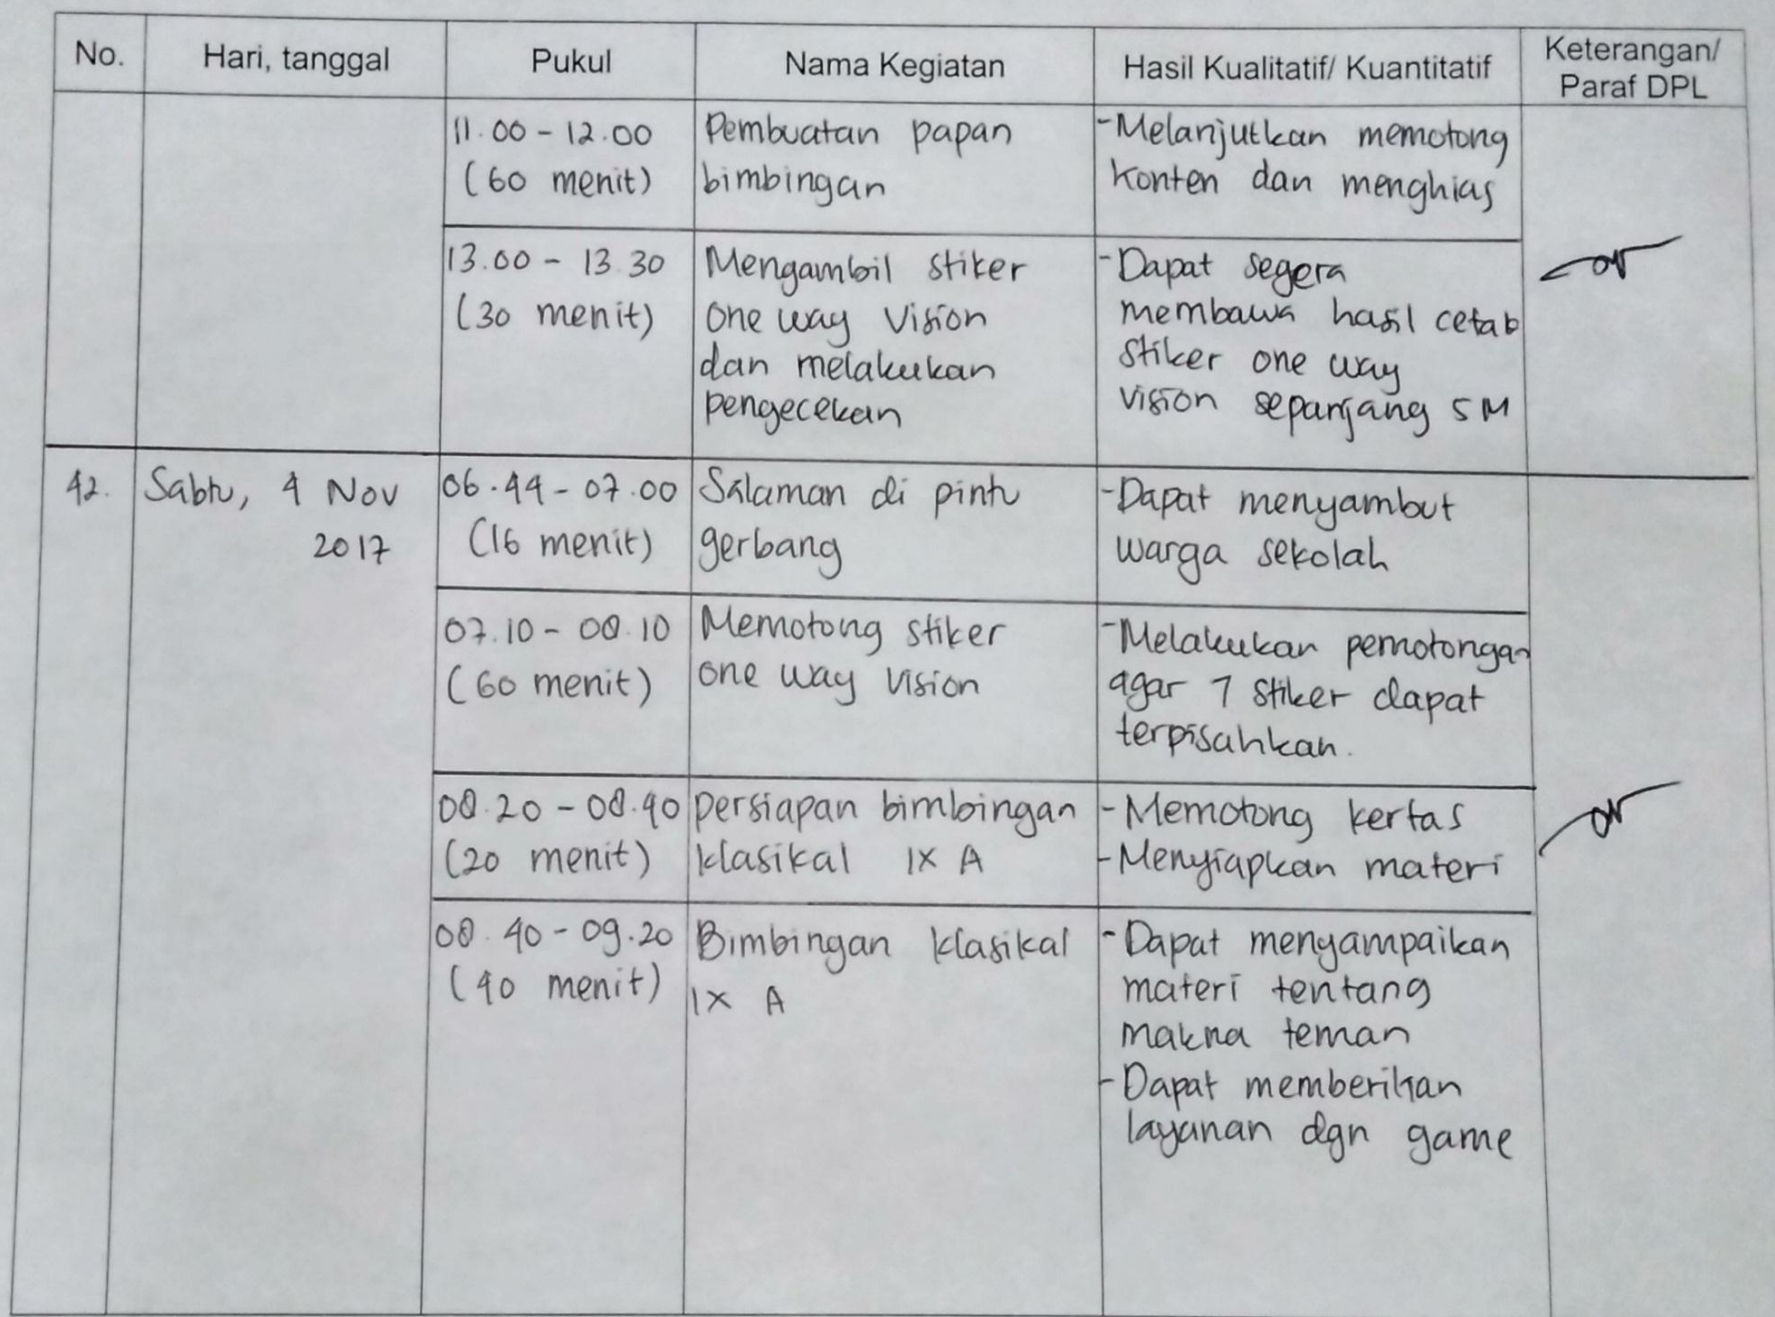 No.
Hari, tanggal
Pukul
Nama Kegiatan
Hasil Kualitatif/ Kuantitatif
Keterangan/
Paraf DPL
11.00 - 12.00
(60 menit)
Pembuatan papan
bimbingan
- Melanjutkan memotong
konten dan menghias
13.00 - 13.30
(30 menit)
Mengambil stiker
one way vision
dan melakukan
pengecekan
- Dapat segera
membawa hasil cetak
stiker one way
vision sepanjang 5 M
42.
Sabtu, 4 Nov
2017
06.44 - 07.00
(16 menit)
Salaman di pintu
gerbang
- Dapat menyambut
warga sekolah
07.10 - 08.10
(60 menit)
Memotong stiker
one way vision
- Melakukan pemotongan
agar 7 stiker dapat
terpisahkan.
08.20 - 08.40
(20 menit)
persiapan bimbingan
klasikal IX A
- Memotong kertas
- Menyiapkan materi
08.40 - 09.20
(40 menit)
Bimbingan klasikal
IX A
- Dapat menyampaikan
materi tentang
makna teman
- Dapat memberikan
layanan dgn game